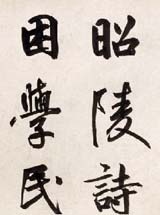 昭陵詩
困學民